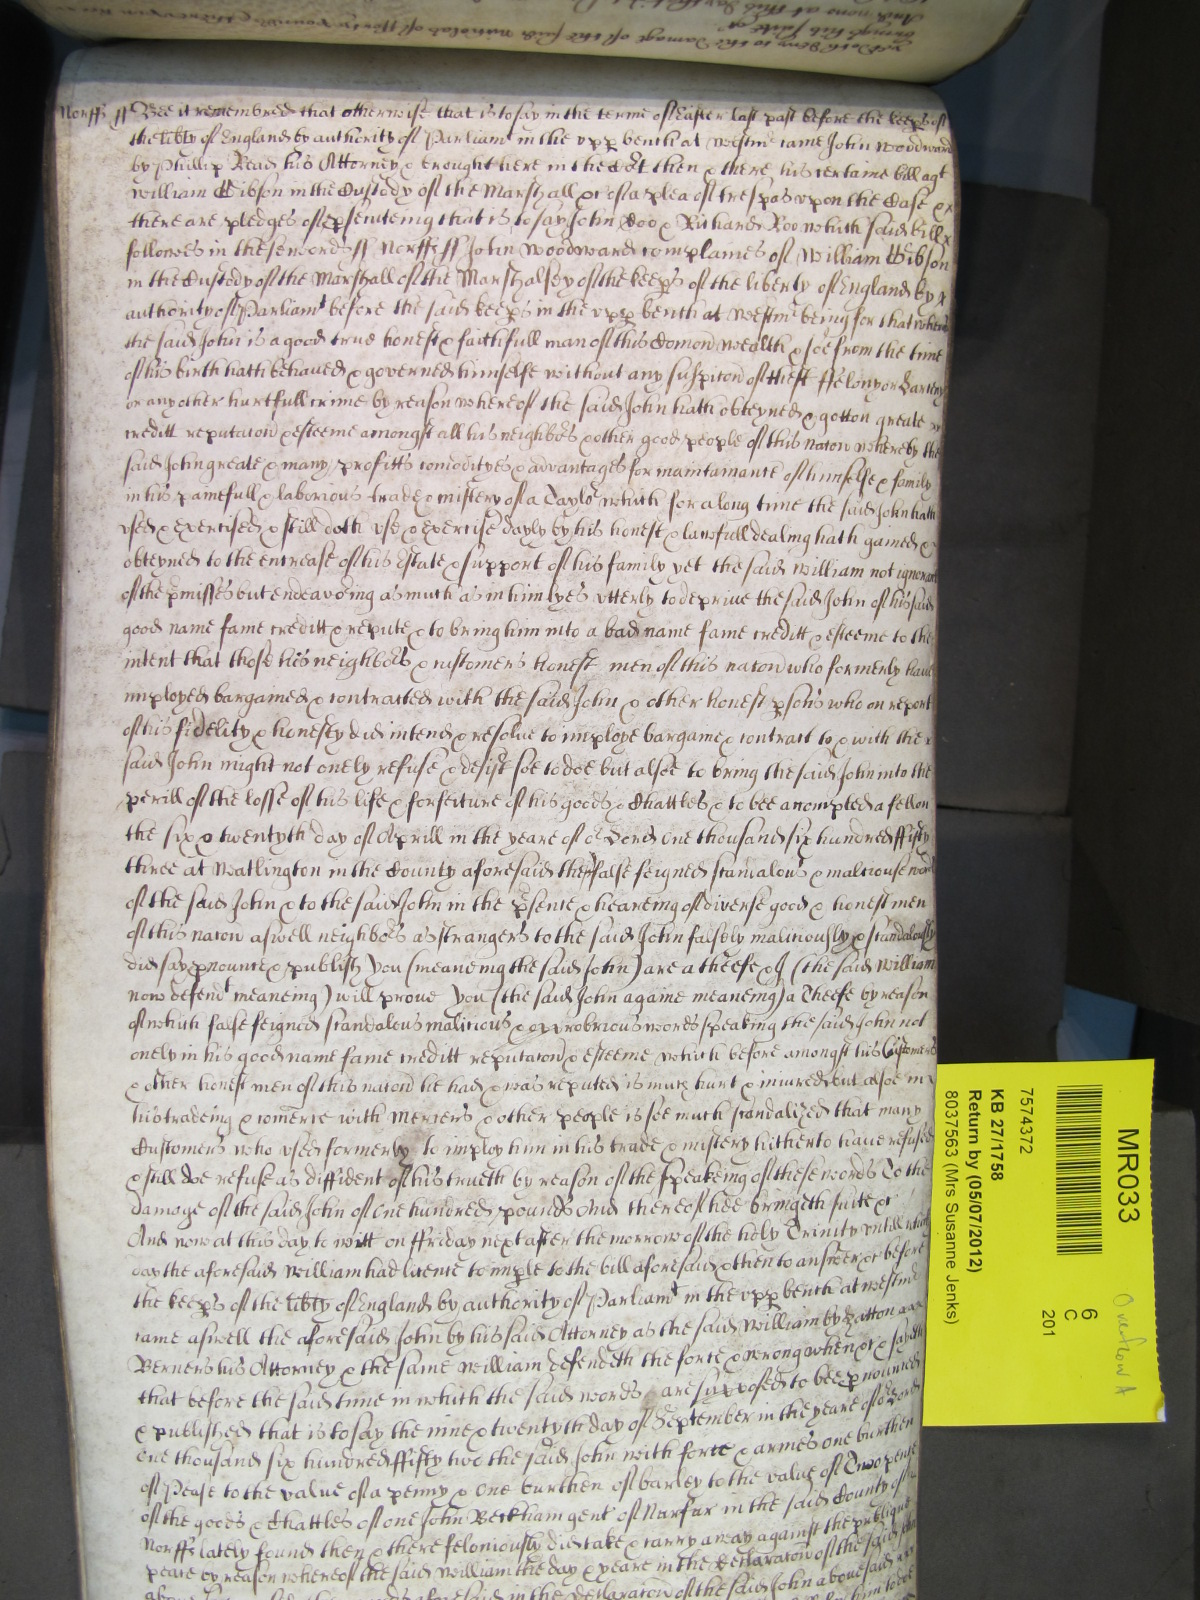 Norff ss Bee it remembred that otherwise that is to say in the terme of Easter last past before the keeps of
the libty of England by authority of Parliamt in the upp bench at Westmr came John Woodward
by Phillip Read his Attorney & brought here in the Court then & there his certaine bill agt
William Gibson in the Custody of the Marshall &c of a plea of trespas upon the Case &
there are pledges of psecuteing that is to say John Doo & Richard Roo which said bill
followes in these words ss Norff ss John Woodward complaines of William Gibson
in the Custody of the Marshall of the Marshalsey of the keeps of the liberty of England by
authority of Parliamt before the said keeps in the upp bench at Westmr being for that where
the said John is a good true honest & faithfull man of this Comon Wealth & soe from the time
of his birth hath behaved & governed himselfe without any suspicon of theft ffelony or
or any other hurtfull crime by reason whereof the said John hath obteyned & gotton greate
creditt reputacon & esteeme amongst all his neighbors & other good people of this nacon whereby the
said John greate & many profitts comodityes & advantages for maintainance of himselfe & family
in his painefull & laborious trade & mistery of a Taylor which for a long time the said John hath
used & exercised & still doth use & exercise dayly by his honest & lawfull dealing hath gained &
obteyned to the encrease of his Estate & support of his family yet the said William not ignorant
of the pmisses but endeavoring as much as in him lyes utterly to deprive the said John of his said
good name fame creditt & repute & to bring him into a bad name fame creditt & esteeme to the
intent that those his neighbors & customers honest men of this nacon who formerly have
imployed bargained & contracted with the said John & other honest psons who on report
of his fidelity & honesty did intend & resolve to imploye bargaine & contract to & with the
said John might not onely refuse & desist soe to doe but alsoe to bring the said John into the
perill of the losse of his life & forfeiture of his goods & Chattles & to bee accompted a fellon
the six & twentyth day of Aprill in the yeare of or Lord One thousand six hundred ffifty
three at Watlington in the County aforesaid these false feigned scandalous & maliciouse words
of the said John & to the said John in the psence & heareing of diverse good & honest men
of this nacon aswell neighbors as strangers to the said John falsely maliciously & scandalously
did say pnounce & publish You (meaneing the said John) are a theefe & I (the said William
now defendt meaneing) will prove You (the said John againe meaneing) a Theefe by reason
of which false feigned scandalous malicious & opprobrious words speaking the said John not
onely in his good name fame creditt reputacon & esteeme which before amongst his Customers
& other honest men of this nacon he had & was reputed is much hurt & iniured but alsoe in
his tradeing & comerce with Mercers & other people is soe much scandalized that many
Customers who used formerly to imploy him in his trade & mistery hitherto have refused
& still doe refuse as diffident of his trueth by reason of the speakeing of these words To the
damage of the said John of One hundred pounds And thereof hee bringeth suite &c
And now at this day to witt on ffriday next after the morrow of the holy Trinity untill which
day the aforesaid William had licence to imple to the bill aforesaid & then to answer &c before
the keeps of the libty of England by authority of Parliamt in the upp bench at Westmr
came aswell the aforesaid John by his said Attorney as the said William by Hatton
Berners his Attorney & the same William defendeth the force & wrong when &c & sayeth
that before the said time in which the said words are supposed to bee pnounced
& published that is to say the nine & twentyth day of September in the yeare of or Lord
One thousand six hundred ffifty two the said John with force & armes one burthen
of Pease to the value of a penny & one burthen of barley to the value of Two pence
of the goods & Chattles of one John Beckham gent of Narfar in the said County of
Norff lately found then & there feloniously did take & carry away against the publique
peace by reason whereof the said William the day & yeare in the declaracon of the said John
MR033
7574372
KB 27/1758
Return by (05/07/2012)
8037563 (Mrs Susanne Jenks)
6
C
201
Overflow A